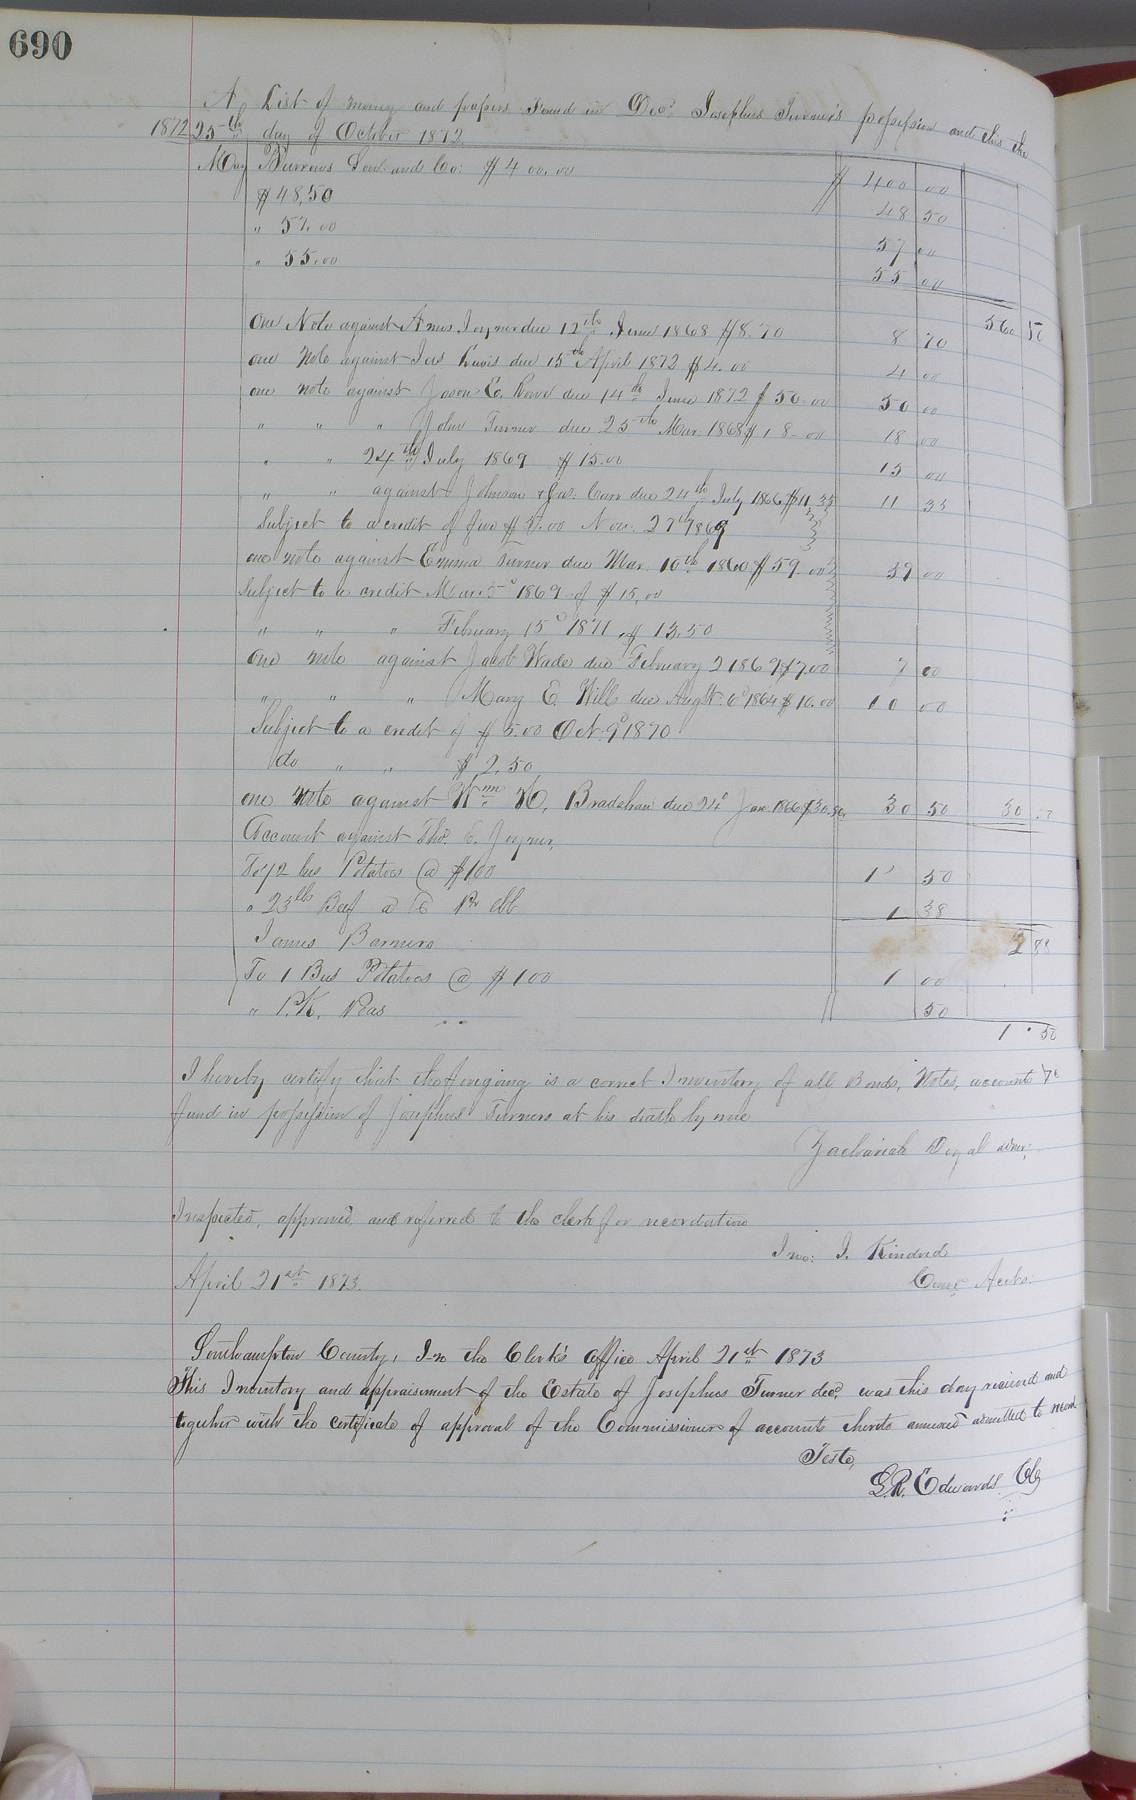 690
A List of money and papers Found in Decd Josephus Turner's possession and this the
1872 25th day of October 1872.
May Burrows and Co: $400.00 $ 400 00
$48,50 48 50
" 57.00 57 00
" 55.00 55 00
560 50
One Note against Amos Joyner due 12th June 1868 $8.70 8 70
one Note against Jas Lewis due 15th April 1872 $4.00 4 00
one note against Jason E. due 14th June 1872 $50.00 50 00
" " " John Turner due 25th Mar 1868 $18-00 18 00
" " 24th July 1869 $15.00 15 00
" " against Johnson & Jas. Carr due 24th July 1866 $11.35 11 35
Subject to a credit of five $5.00 Nov. 27th 1869
one note against Emma Turner due Mar. 10th 1860 $59.00 59 00
Subject to a credit Mar 5d 1869 of $15,00
" " " February 15d 1871, $13.50
one note against Jacob Wade due February 2 1869 $7.00 7 00
" " " Mary E. Wills due Augt. 6d 1864 $10.00 10 00
Subject to a credit of $5.00 Oct. 9d 1870
do " " $2.50
one note against Wm H. Bradshaw due 24d Jan 1866 $30.50, 30 50 30
Account against Tho. E. Joyner,
Potatoes @ $1,00 1 50
" 23 lbs Beef 1 38
2 88
James Barnes
To 1 Bus Potatoes @ $100 1 00
" P.K. Peas 50
1 . 50
I hereby certify that the foregoing is a correct Inventory of all Bonds, Notes, accounts &c
fund in possession of Josephus Turners at his death by me
Zachariah admr;
Inspected, approved and referred to the clerk for recordation
Jno: J. Kindred
April 21st 1873. Comr Accts.
Southampton County, In the Clerk's office April 21st 1873
This Inventory and appraisement of the Estate of Josephus Turner decd. was this day recieved and
together with the certificate of approval of the Commissioner of accounts thereto annexed admitted to record
Teste,
L.R. Edwards Clk